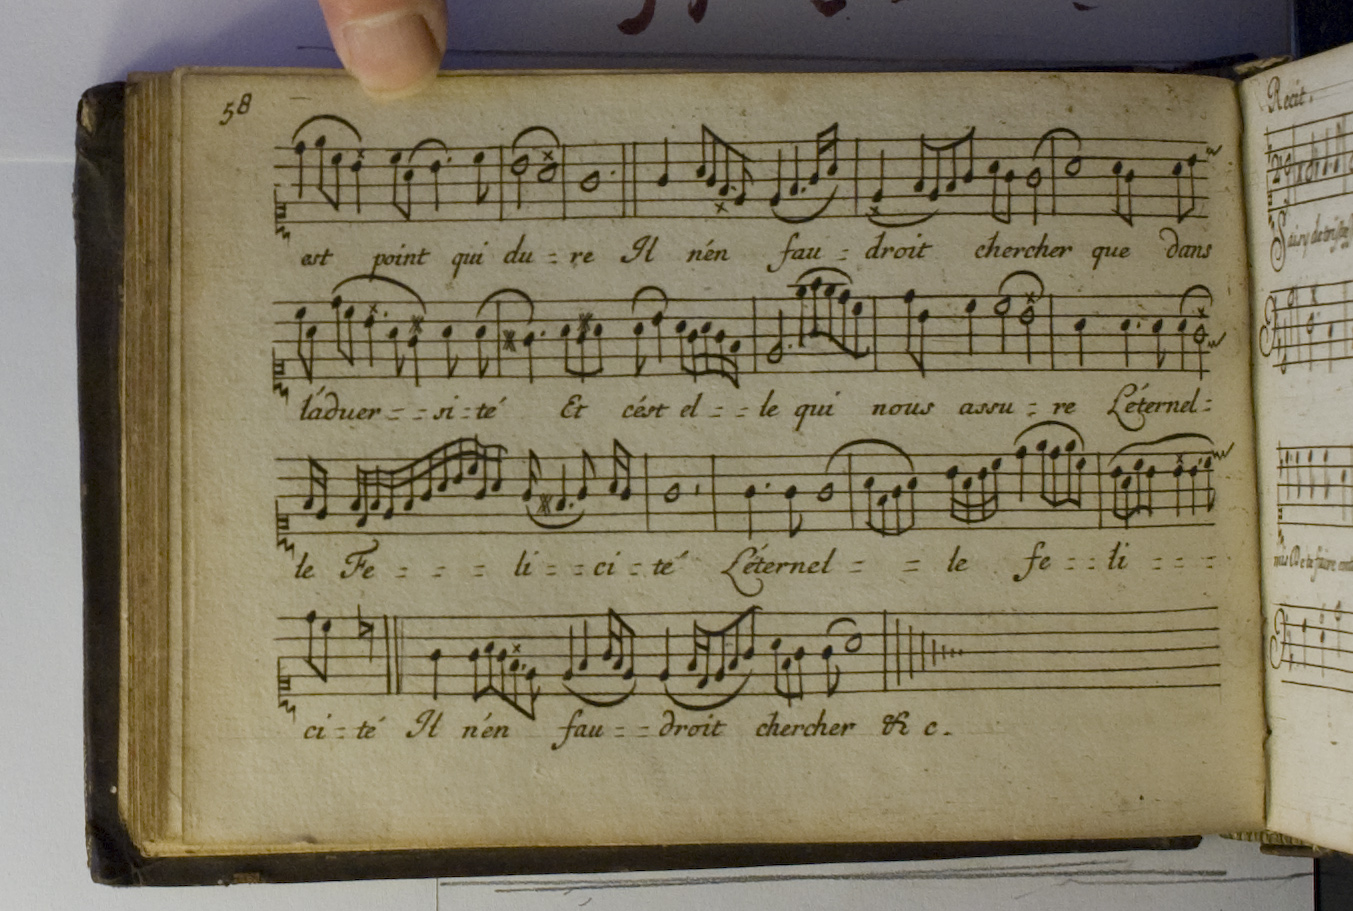 58
est point qui du - re Il nén fau - droit chercher que dans
láduer - - si - té Et cést el - - le qui nous assu - re Léternel -
le Fe - - - li - - ci - té Léternel - - le fe - - li - - -
ci - té Il nén fau - - droit chercher & c.
Recit.